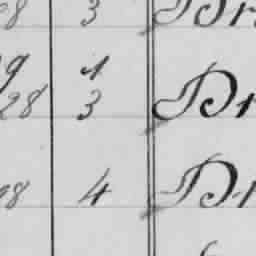 28 3 Dr
9 1
28 3 Dr
98 4 Dr